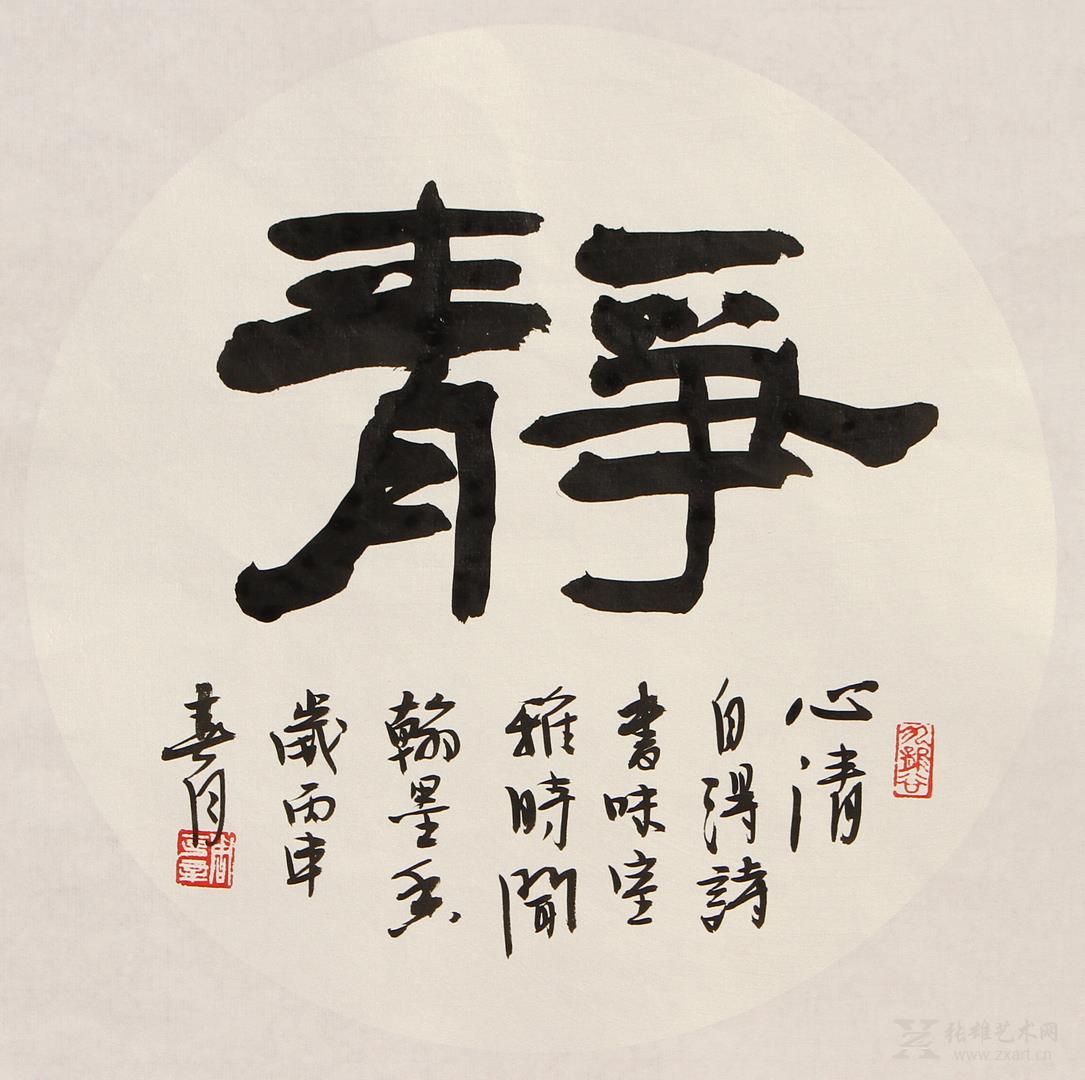 靜
心清
自得詩
書味室
雅時聞
翰墨香
歲丙申
春月
张雄艺术网
www.zxart.cn